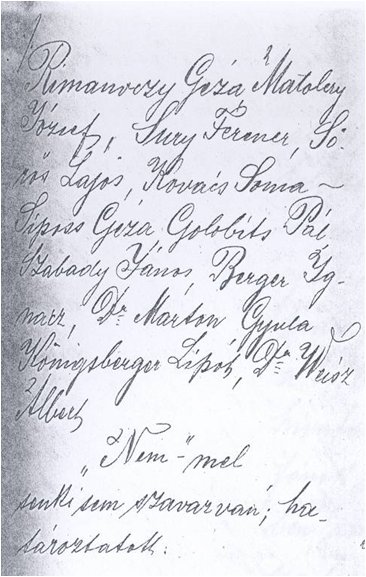 Rimanoczy Géza, Matolcsy
József, Sury Ferenc, Sö-
rös Lajos, Kovács Soma
Siposs Géza Golobits Pál
Szabady János, Berger Ig-
nacz, Dr Marton Gyula
Königsberger Lipót, Dr Weisz
Albert
„Nem"-mel
senki sem szavazván; ha-
tároztatott: